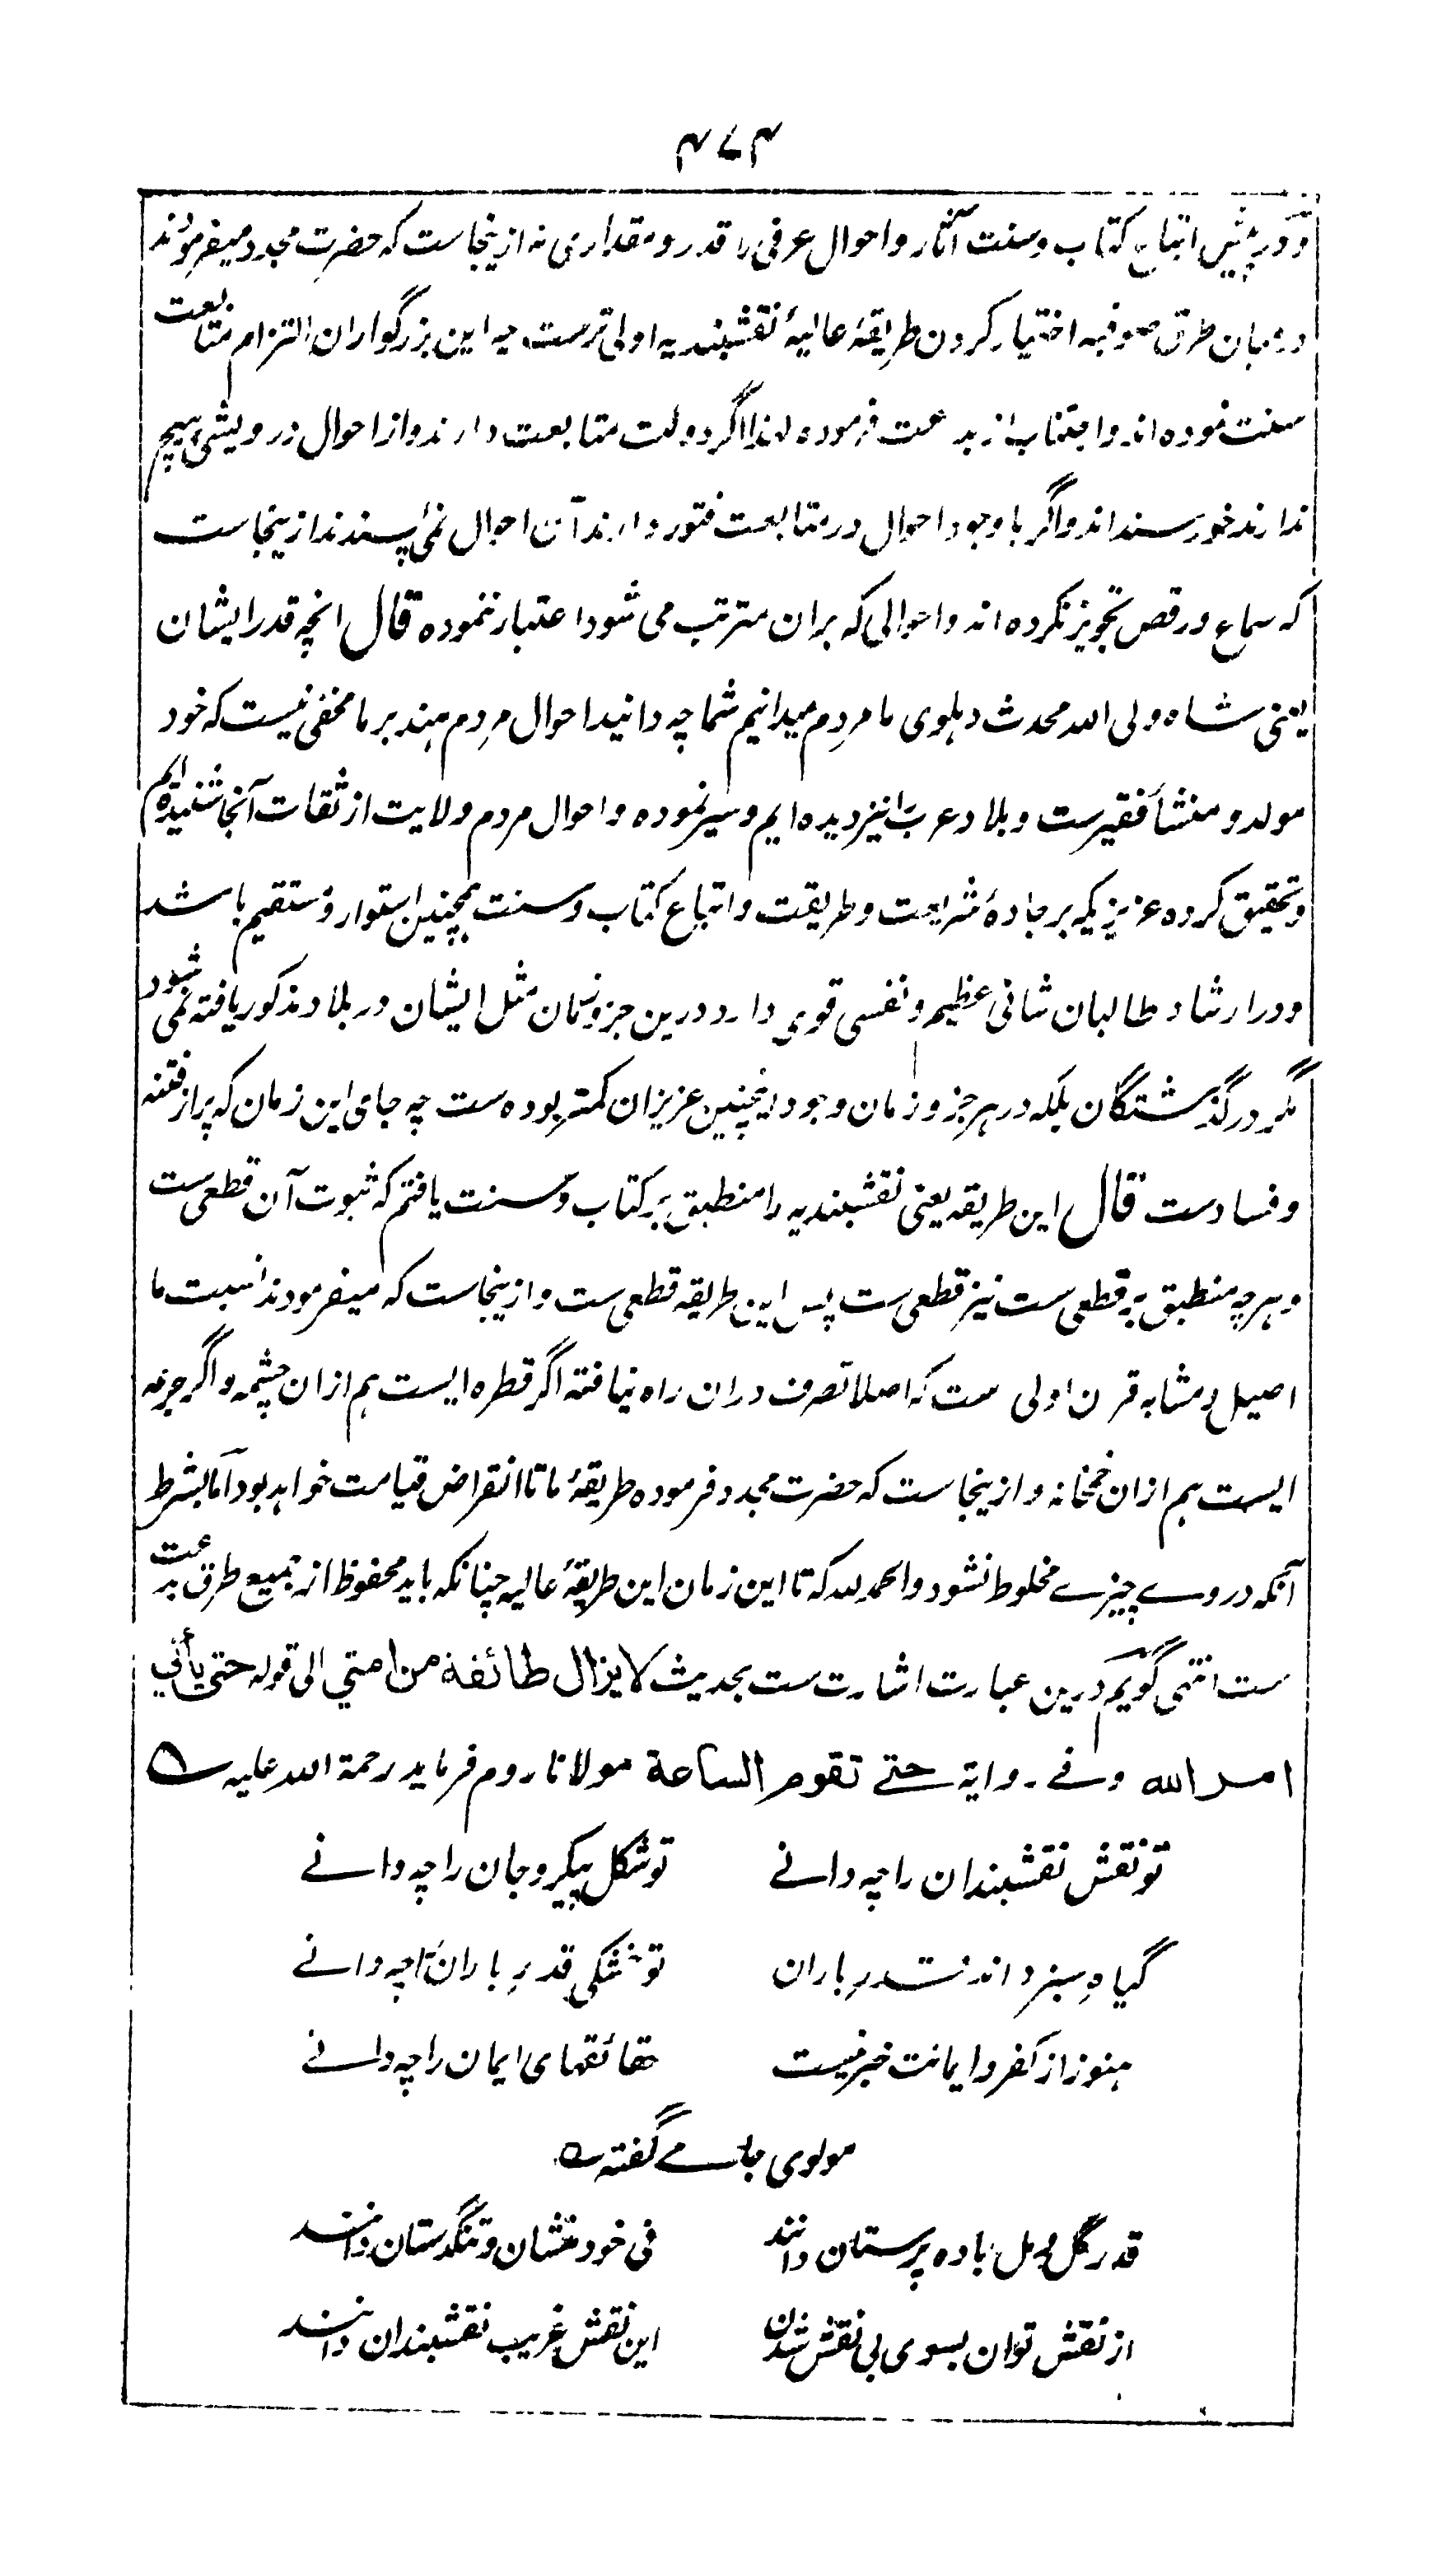 ۴۷۴
و در پیش اتباع کتاب و سنت آثار و احوال عرفی را قدر و مقداری نه ازینجاست که حضرت مجدد میفرمودند
درمیان طرق صوفیه اختیار کردن طریقهٔ عالیهٔ نقشبندیه اولی ترست چه این بزرگواران التزام متابعت
سنت نموده اند و اجتناب از بدعت فرموده لهذا اگر دولت متابعت دارند و از احوال درویشی هیچ
ندارند خورسند اند و اگر با وجود احوال در متابعت فتور دارند آن احوال نمی پسندند ازینجاست
که سماع و رقص تجویز نکرده اند و احوالی که بران مترتب می شود اعتبار ننموده قال انچه قدر ایشان
یعنی شاه ولی الله محدث دہلوی ما مردم میدانیم شما چه دانید احوال مردم ہند بر ما مخفی نیست که خود
مولد و منشأ فقیرست و بلاد عرب را نیز دیده ایم و سیر نموده و احوال مردم ولایت از ثقات آنجا شنیده ایم
و تحقیق کرده عزیزیکه بر جادهٔ شریعت و طریقت و اتباع کتاب و سنت ہمچنین استوار و مستقیم باشد
و در ارشاد طالبان شانی عظیم و نفسی قوی دارد درین جزو زمان مثل ایشان در بلاد مذکور یافته نمی شود
مگر در گذشتگان بلکه در ہر جزو زمان وجود اینچنین عزیزان کمتر بوده ست چه جای این زمان که پر از فتنه
و فسادست قال این طریقه یعنی نقشبندیه را منطبق بر کتاب و سنت یافتم که ثبوت آن قطعی ست
و ہرچه منطبق بر قطعی ست نیز قطعی ست پس این طریقه قطعی ست و ازینجاست که میفرمودند نسبت ما
اصیل و مشابه قرن اولی ست که اصلا تصرف دران راه نیافته اگر قطره ایست ہم ازان چشمه و اگر جرعه
ایست ہم ازان خمخانه و ازینجاست که حضرت مجدد فرموده طریقهٔ ما تا انقراض قیامت خواہد بود اما بشرط
آنکه در وے چیزے مخلوط نشود و الحمد لله که تا این زمان این طریقهٔ عالیه چنانکه باید محفوظ از جمیع طرق بدعت
ست انتہی گویم درین عبارت اشارت ست بحدیث لا یزال طائفة من امتي الی قوله حتی یأتي
امر الله وفے روایة حتے تقوم الساعة مولانا روم فرماید رحمة الله علیه ؎
تو نقش نقشبندان را چه دانے تو شکل پیکر و جان را چه دانے
گیاه سبز داند قدر باران تو خشکی قدر باران را چه دانے
ہنوز از کفر و ایمانت خبر نیست حقائقهای ایمان را چه دانے
مولوی جامے گفته ؎
قدر گل و مل باده پرستان دانند نی خود منشان و تنگدستان دانند
از نقش توان بسوی بی نقش شدن این نقش غریب نقشبندان دانند